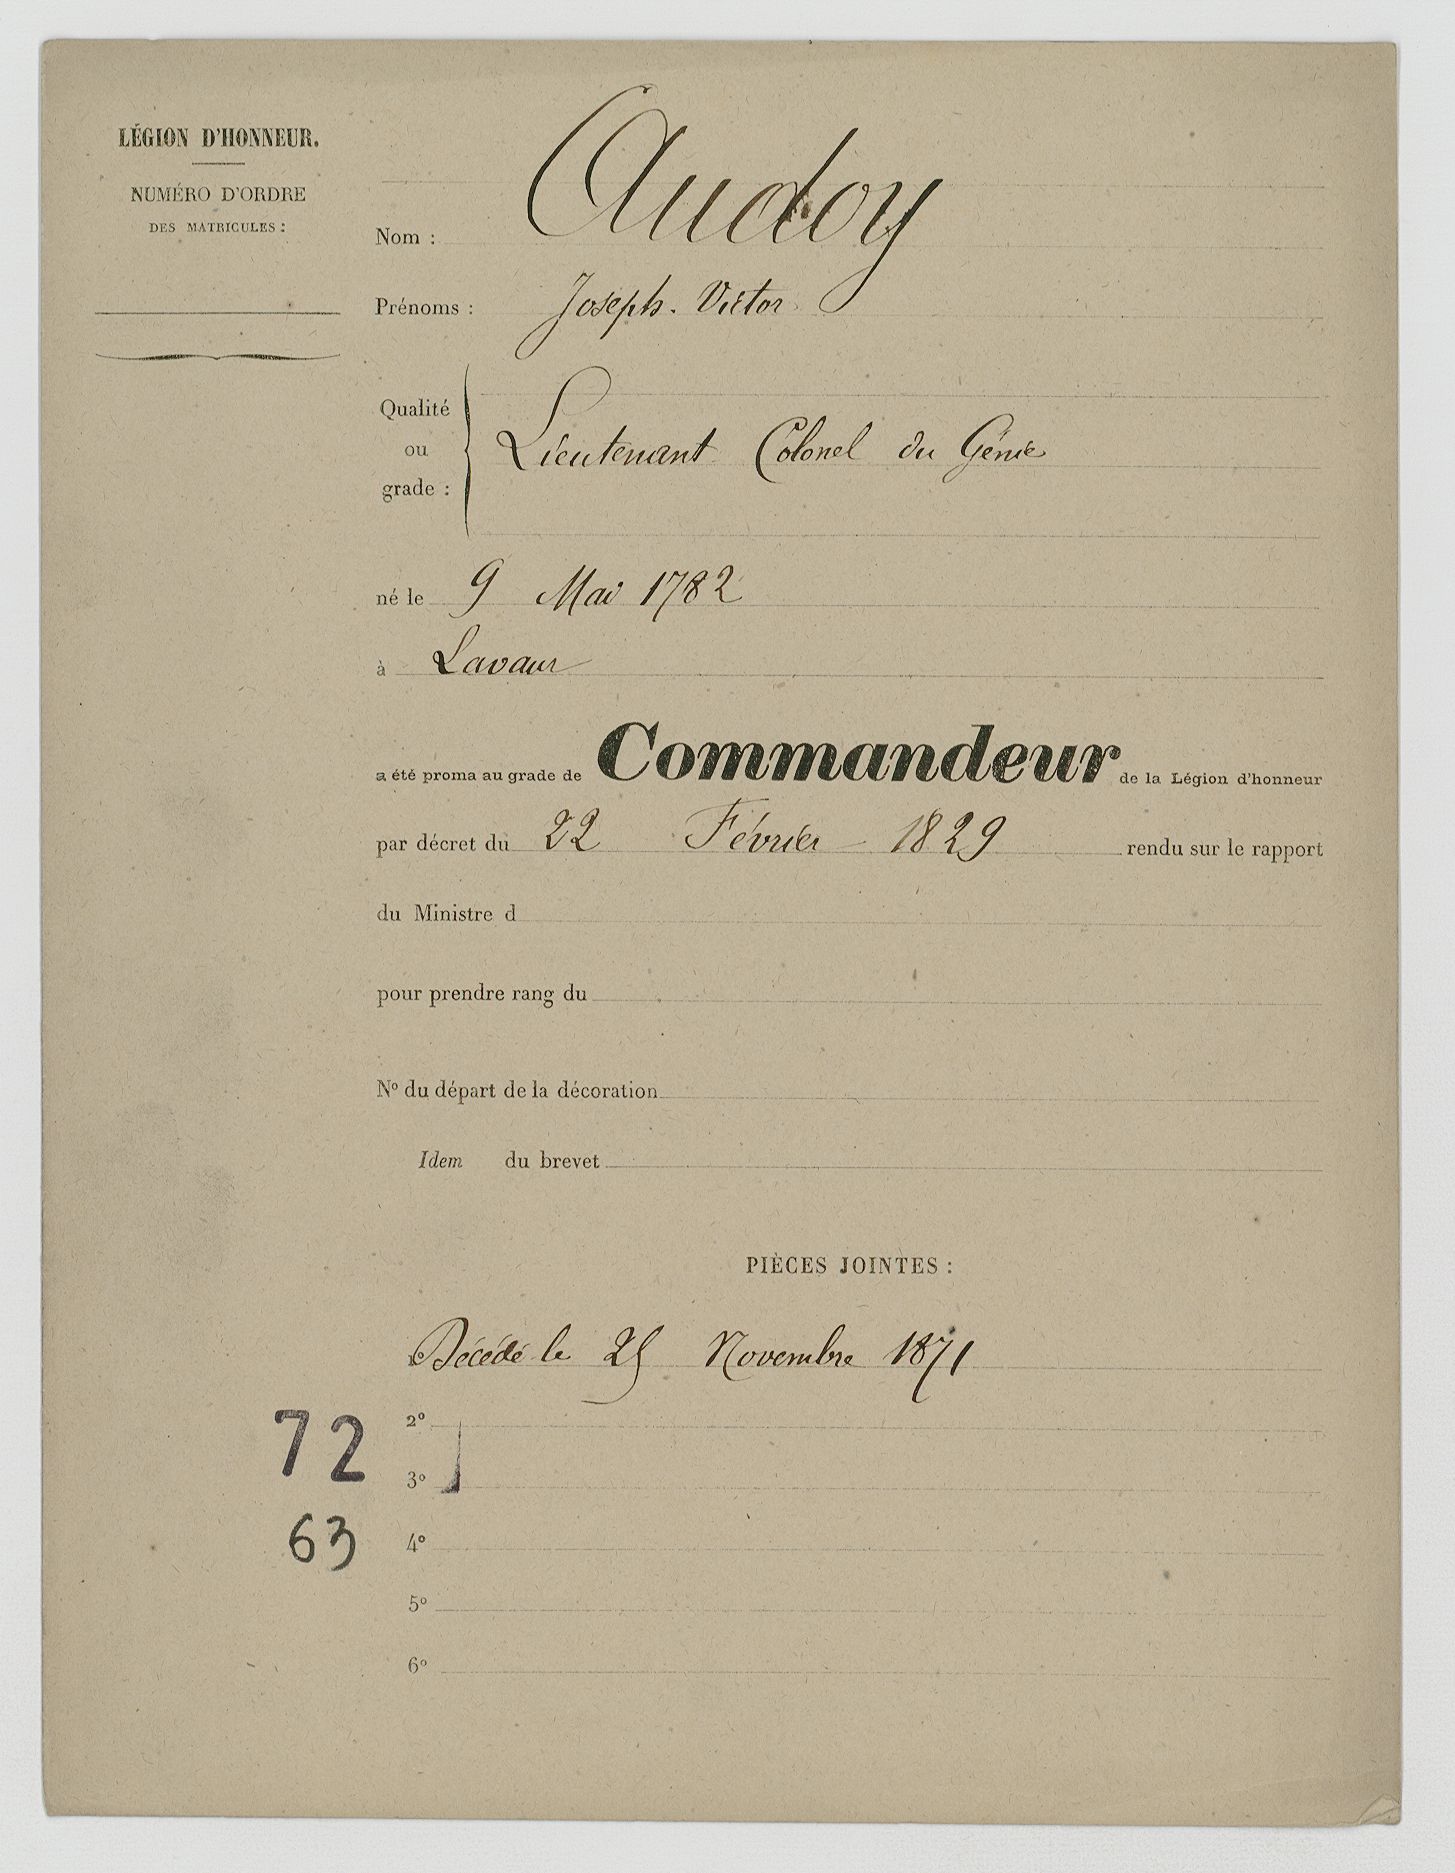 LÉGION D'HONNEUR.
NUMÉRO D'ORDRE
DES MATRICULES :
Nom : Audoy
Prénoms : Joseph. Victor
Qualité
ou
grade :
Lieutenant Colonel du Génie
né le 9 Mai 1782
à Lavaur
a été promu au grade de Commandeur de la Légion d'honneur
par décret du 22 Février 1829 rendu sur le rapport
du Ministre d
pour prendre rang du
No du départ de la décoration
Idem du brevet
PIÈCES JOINTES :
1o Décédé le 25 Novembre 1871
72
2o
3o
63
4o
5o
6o